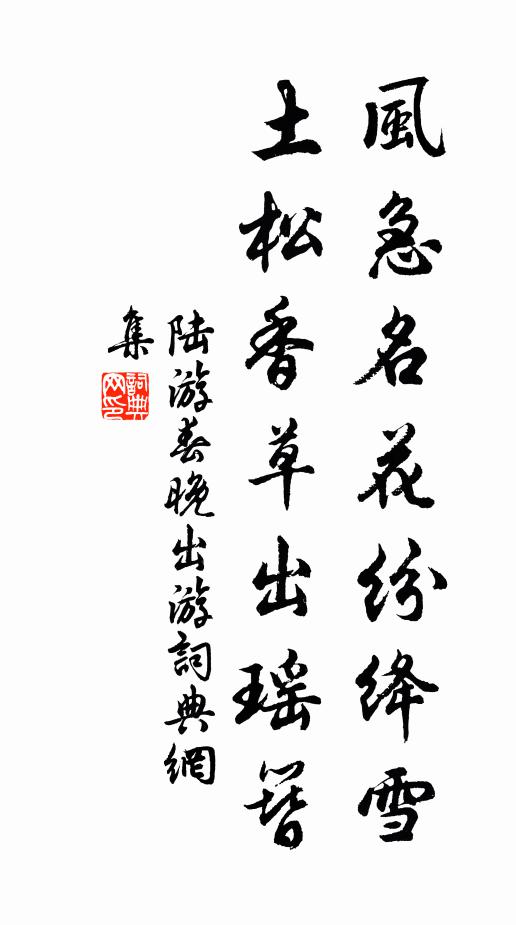 風急名花紛絳雪
土松香草出瑶簪
陆游春晚出游詞典網
集
詞典网印